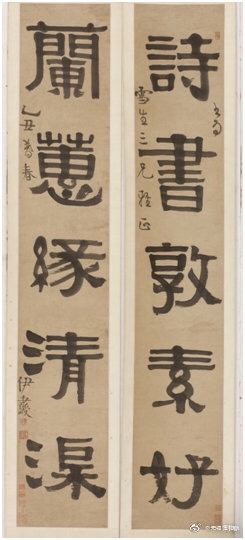 詩書敦素好
書為
雪生三兄雅正
蘭蕙緣清渠
乙丑暮春
伊秉綬